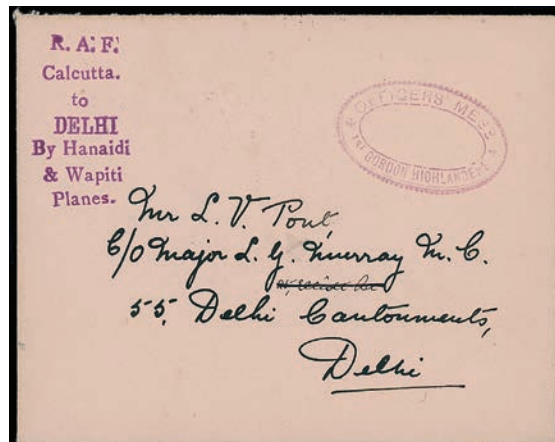 R. A. F.
Calcutta.
to
DELHI
By Hanaidi
& Wapiti
Planes.
OFFICERS' MESS
1ST GORDON HIGHLANDERS
Mr L. V. Pont,
C/O Major L. G. Murray M. C.
55, Delhi Cantonments,
Delhi